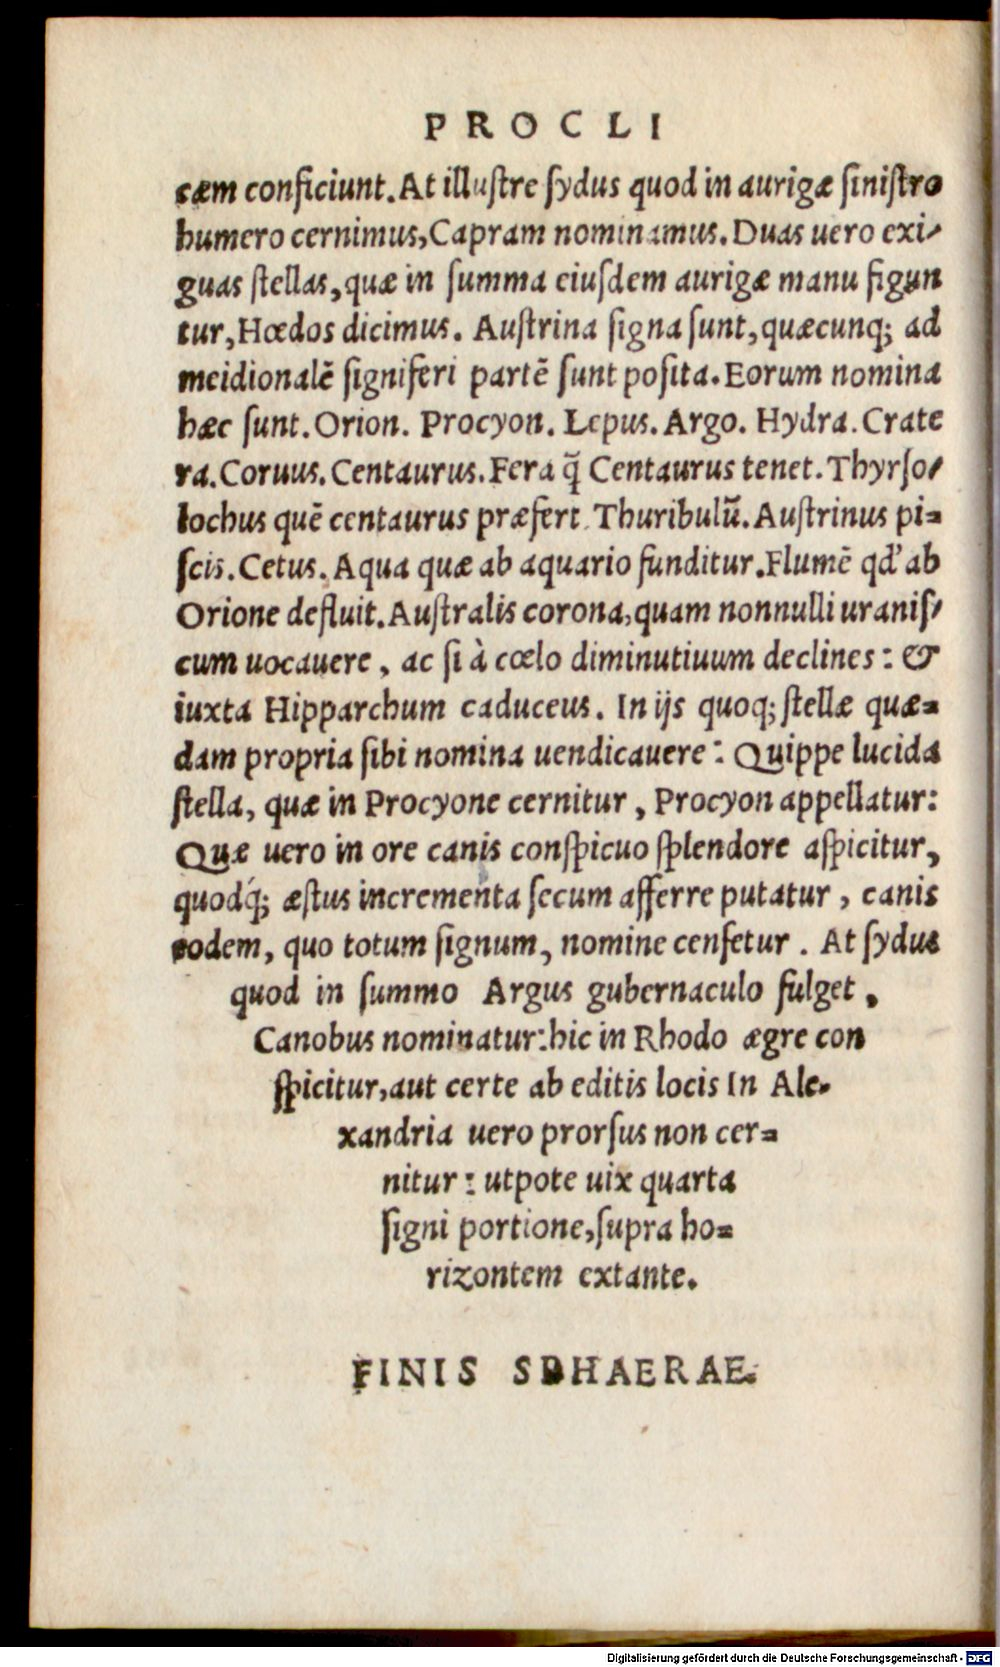 PROCLI
cæm conficiunt. At illustre sydus quod in aurigæ sinistro
humero cernimus, Capram nominamus. Duas uero exi-
guas stellas, quæ in summa eiusdem aurigæ manu figun
tur, Hœdos dicimus. Austrina signa sunt, quæcunq; ad
meidionalē signiferi partē sunt posita. Eorum nomina
hæc sunt. Orion. Procyon. Lepus. Argo. Hydra. Crate
ra. Coruus. Centaurus. Fera q̄ Centaurus tenet. Thyrso-
lochus quē centaurus præfert. Thuribulū. Austrinus pi-
scis. Cetus. Aqua quæ ab aquario funditur. Flumē qd' ab
Orione defluit. Australis corona, quam nonnulli uranis-
cum uocauere, ac si à cœlo diminutiuum declines: &
iuxta Hipparchum caduceus. In ijs quoq; stellæ quæ-
dam propria sibi nomina uendicauere: Quippe lucida
stella, quæ in Procyone cernitur, Procyon appellatur:
Quæ uero in ore canis conspicuo splendore aspicitur,
quodq́; æstus incrementa secum afferre putatur, canis
eodem, quo totum signum, nomine censetur. At sydus
quod in summo Argus gubernaculo fulget,
Canobus nominatur: hic in Rhodo ægre con
spicitur, aut certe ab editis locis In Ale-
xandria uero prorsus non cer-
nitur: utpote uix quarta
signi portione, supra ho-
rizontem extante.
FINIS SPHAERAE.
Digitalisierung gefördert durch die Deutsche Forschungsgemeinschaft - DFG